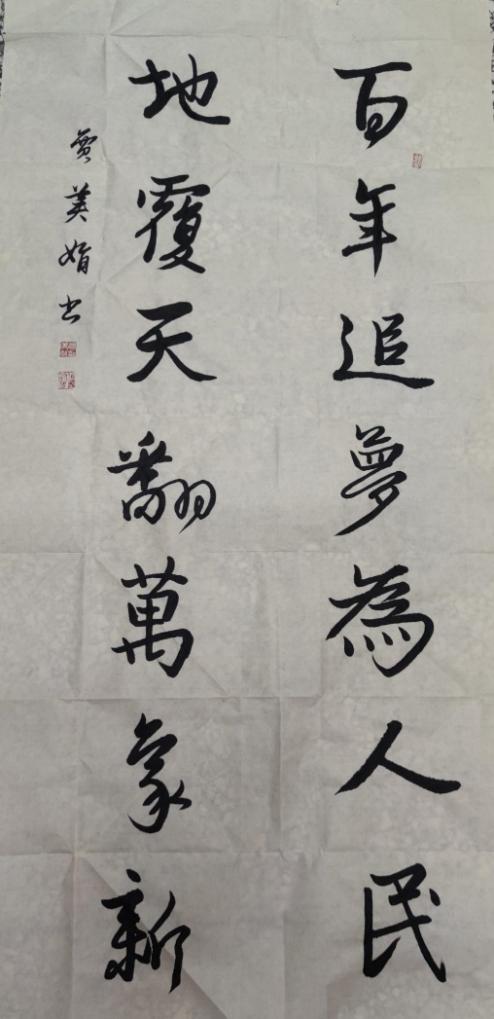 百年追夢為人民
地覆天翻萬象新
賈美娟書